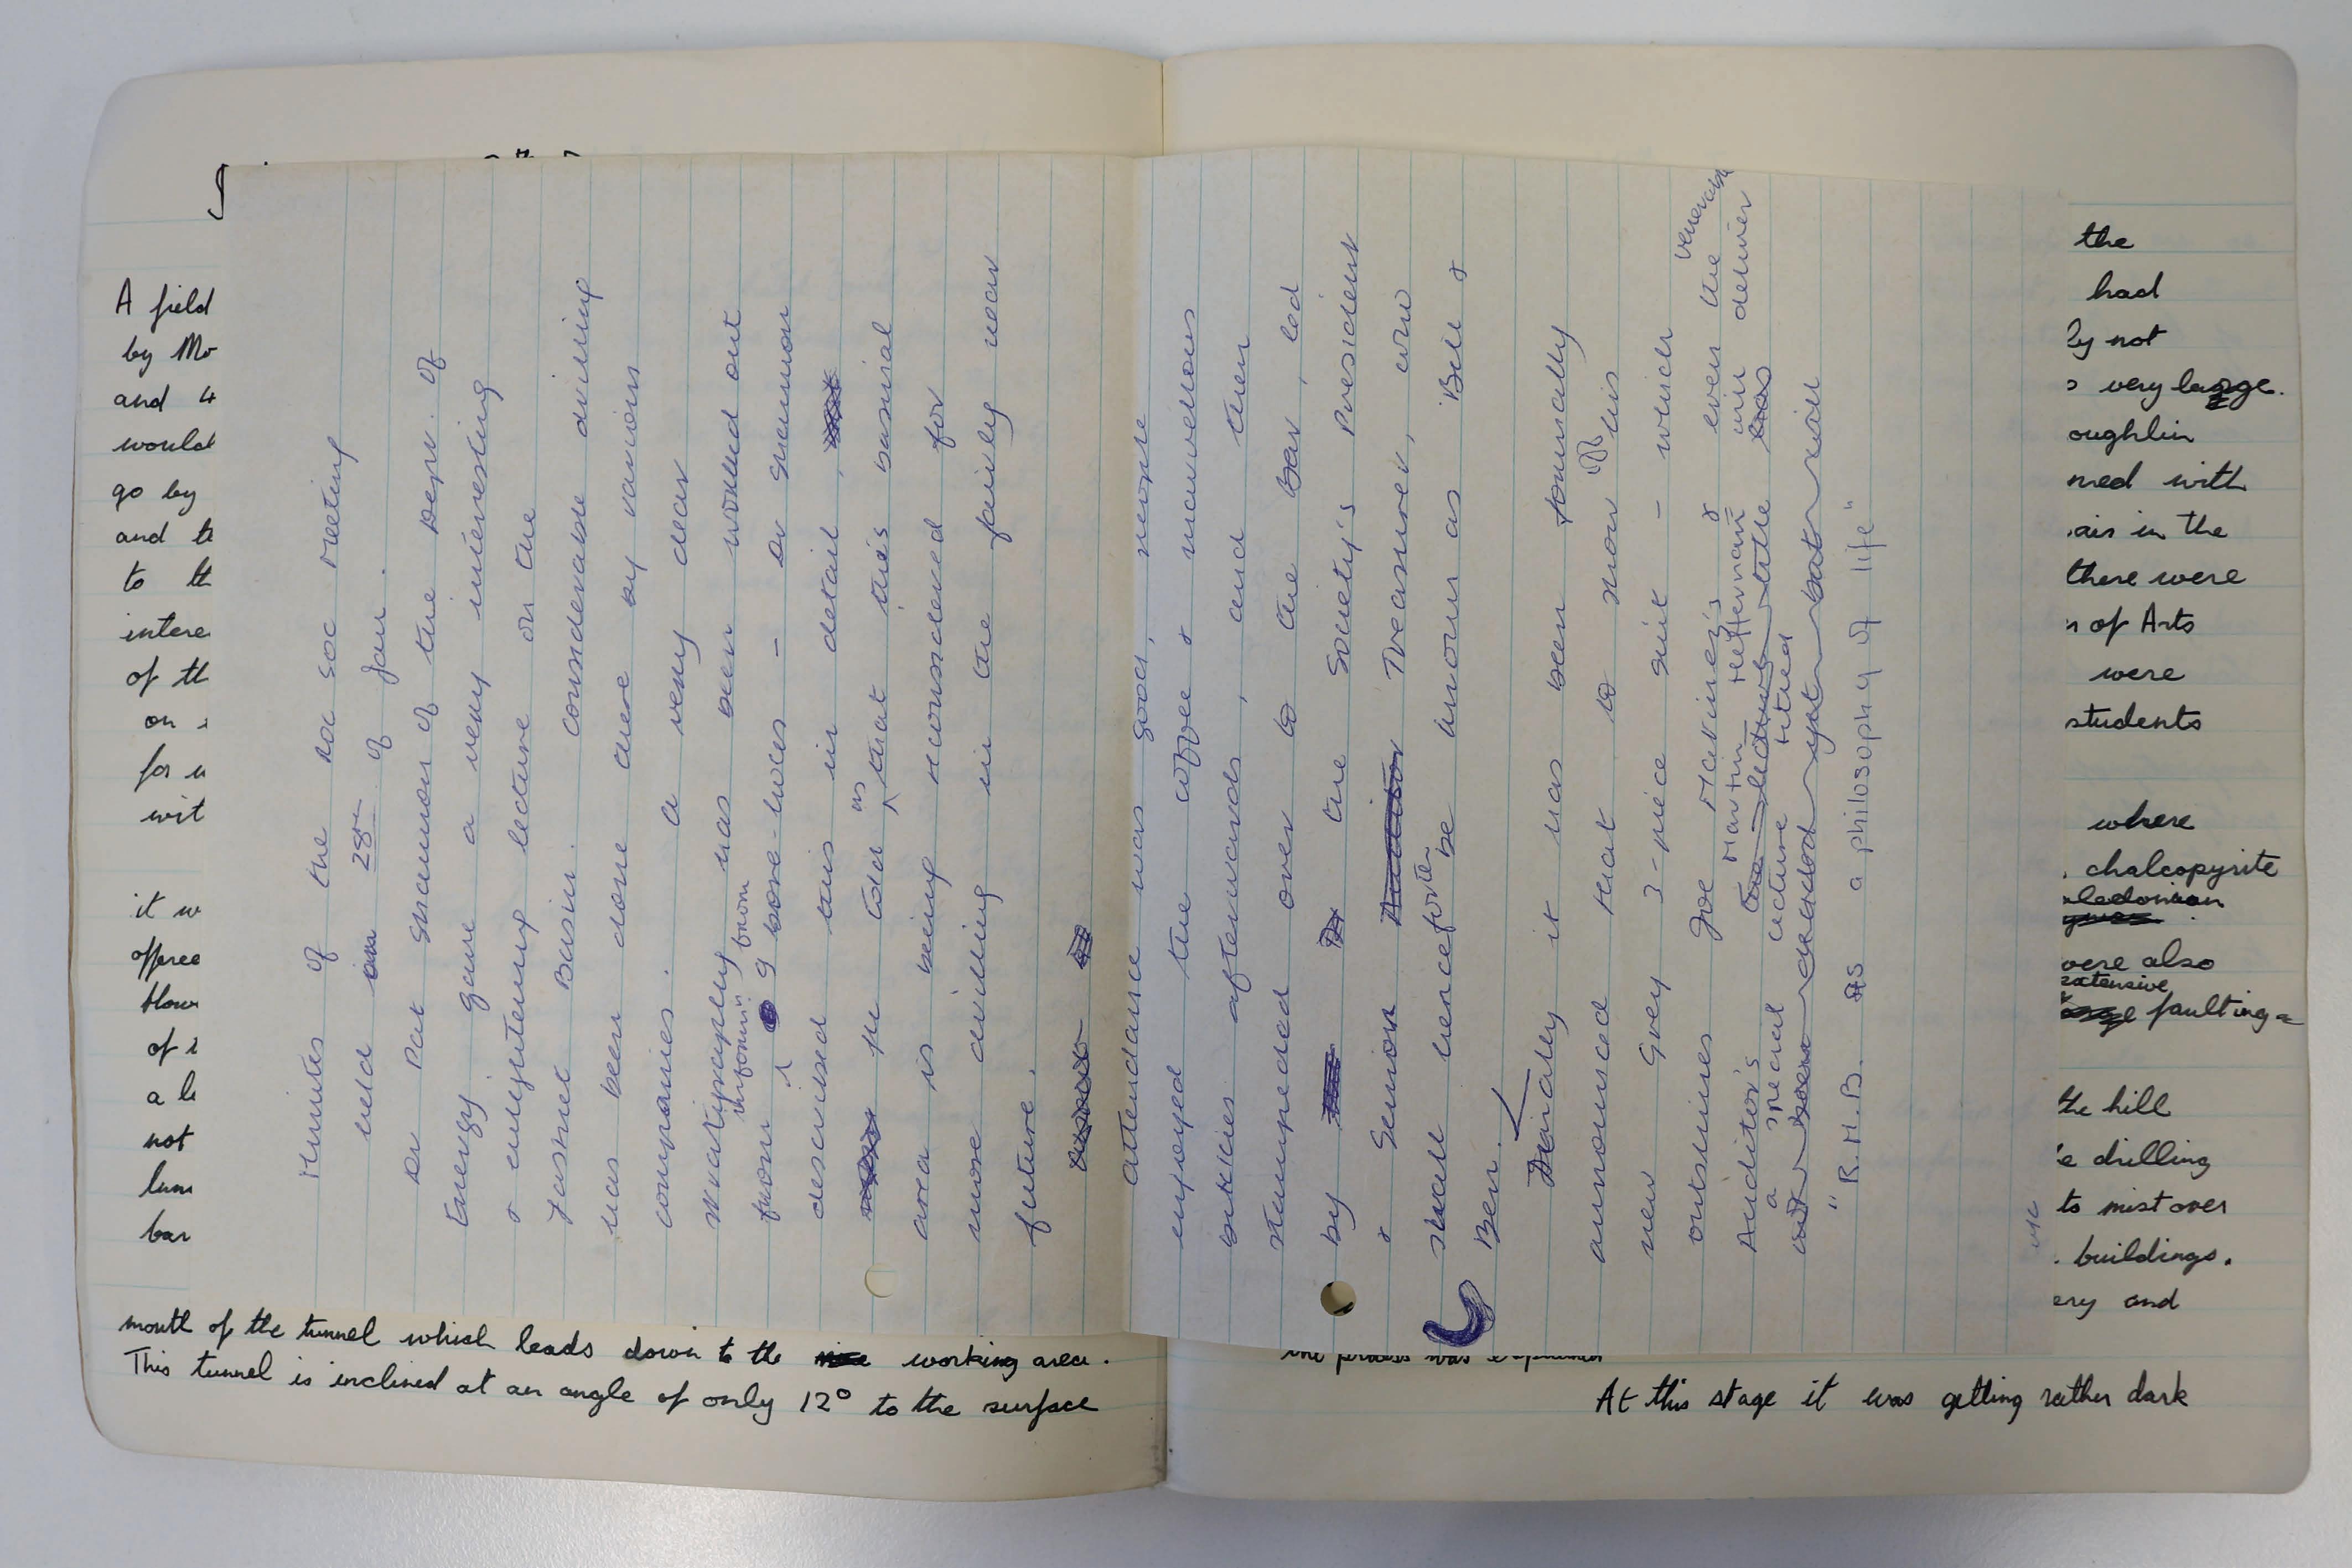 Minutes of the Roc Soc Meeting
held on 28th of Jan.
Dr Pat Shannon of the Dept. of
Energy gave a very interesting
& enlightening lecture on the
Fastnet Basin. Considerable drilling
has been done there by various
companies. A very clear
stratigraphy has been worked out
from information from 9 bore-holes – Dr Shannon
described this in detail,
He told us that this basinal
area is being reconsidered for
more drilling in the fairly near
future.
Attendance was good, people
enjoyed the coffee & marvellous
bikkies afterwards, and then
stampeded over to the Bar, led
by the Society's President
& Senior Treasurer, who
shall henceforth be known as Bill &
Ben.
Finally it has been formally
announced that to show off his
new Grey 3-piece suit – which
outshines Joe Makiney's & even the venerable
Auditor's Martin Heffernan will deliver
a special lecture titled
"R.H.B. as a philosophy of life"
A field
by Mo
and 4
would
go by
and te
to th
intere
of th
on
for
wit
it w
offere
blow
of
a le
not
lum
bar
mouth of the tunnel which leads down to the working area.
This tunnel is inclined at an angle of only 12° to the surface
the
had
ly not
very large.
oughlin
med with
ais in the
there were
of Arts
were
students
where
chalcopyrite
aledonian
were also
extensive
faulting
the hill
e drilling
to mist over
buildings.
ery and
the process was explained
At this stage it was getting rather dark